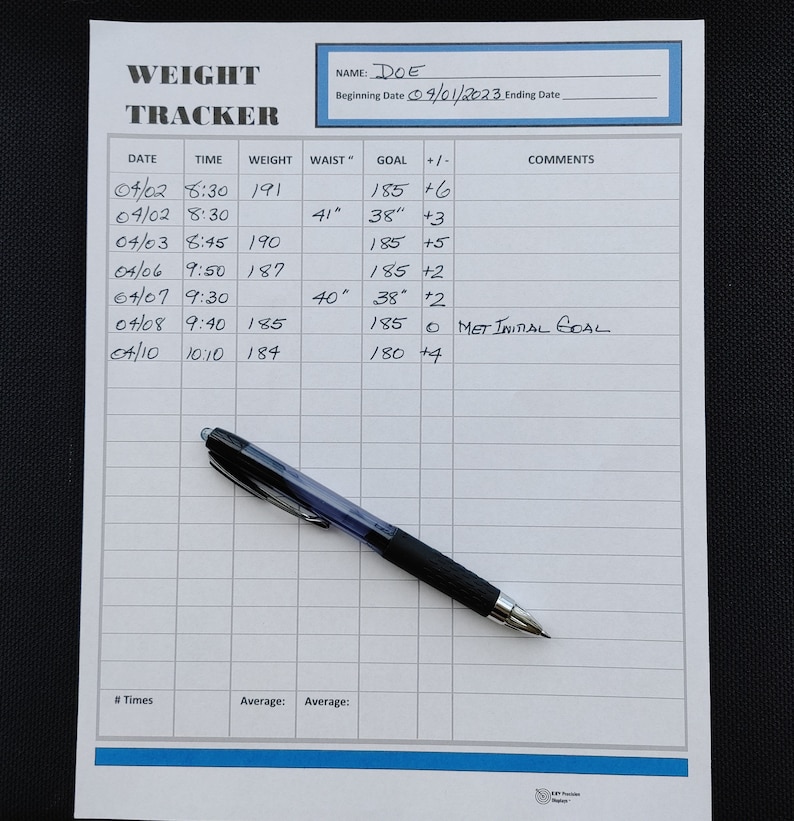 WEIGHT
TRACKER
NAME: DOE
Beginning Date 04/01/2023 Ending Date
DATE TIME WEIGHT WAIST " GOAL + / - COMMENTS
04/02 8:30 191 185 +6
04/02 8:30 41" 38" +3
04/03 8:45 190 185 +5
04/06 9:50 187 185 +2
04/07 9:30 40" 38" +2
04/08 9:40 185 185 0 MET INITIAL GOAL
04/10 10:10 184 180 +4
# Times Average: Average:
DIY Precision
Displays